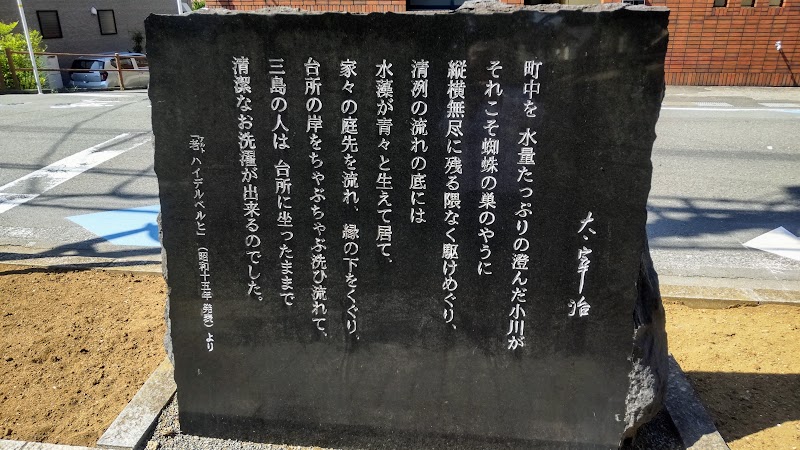 太宰治
町中を 水量たっぷりの澄んだ小川が
それこそ蜘蛛の巣のやうに
縦横無尽に残る隈なく駆けめぐり、
清冽の流れの底には
水藻が青々と生えて居て、
家々の庭先を流れ、縁の下をくぐり、
台所の岸をちゃぶちゃぶ洗ひ流れて、
三島の人は 台所に坐ったままで
清潔なお洗濯が出来るのでした。
「老ハイデルベルヒ」(昭和十五年 発表)より